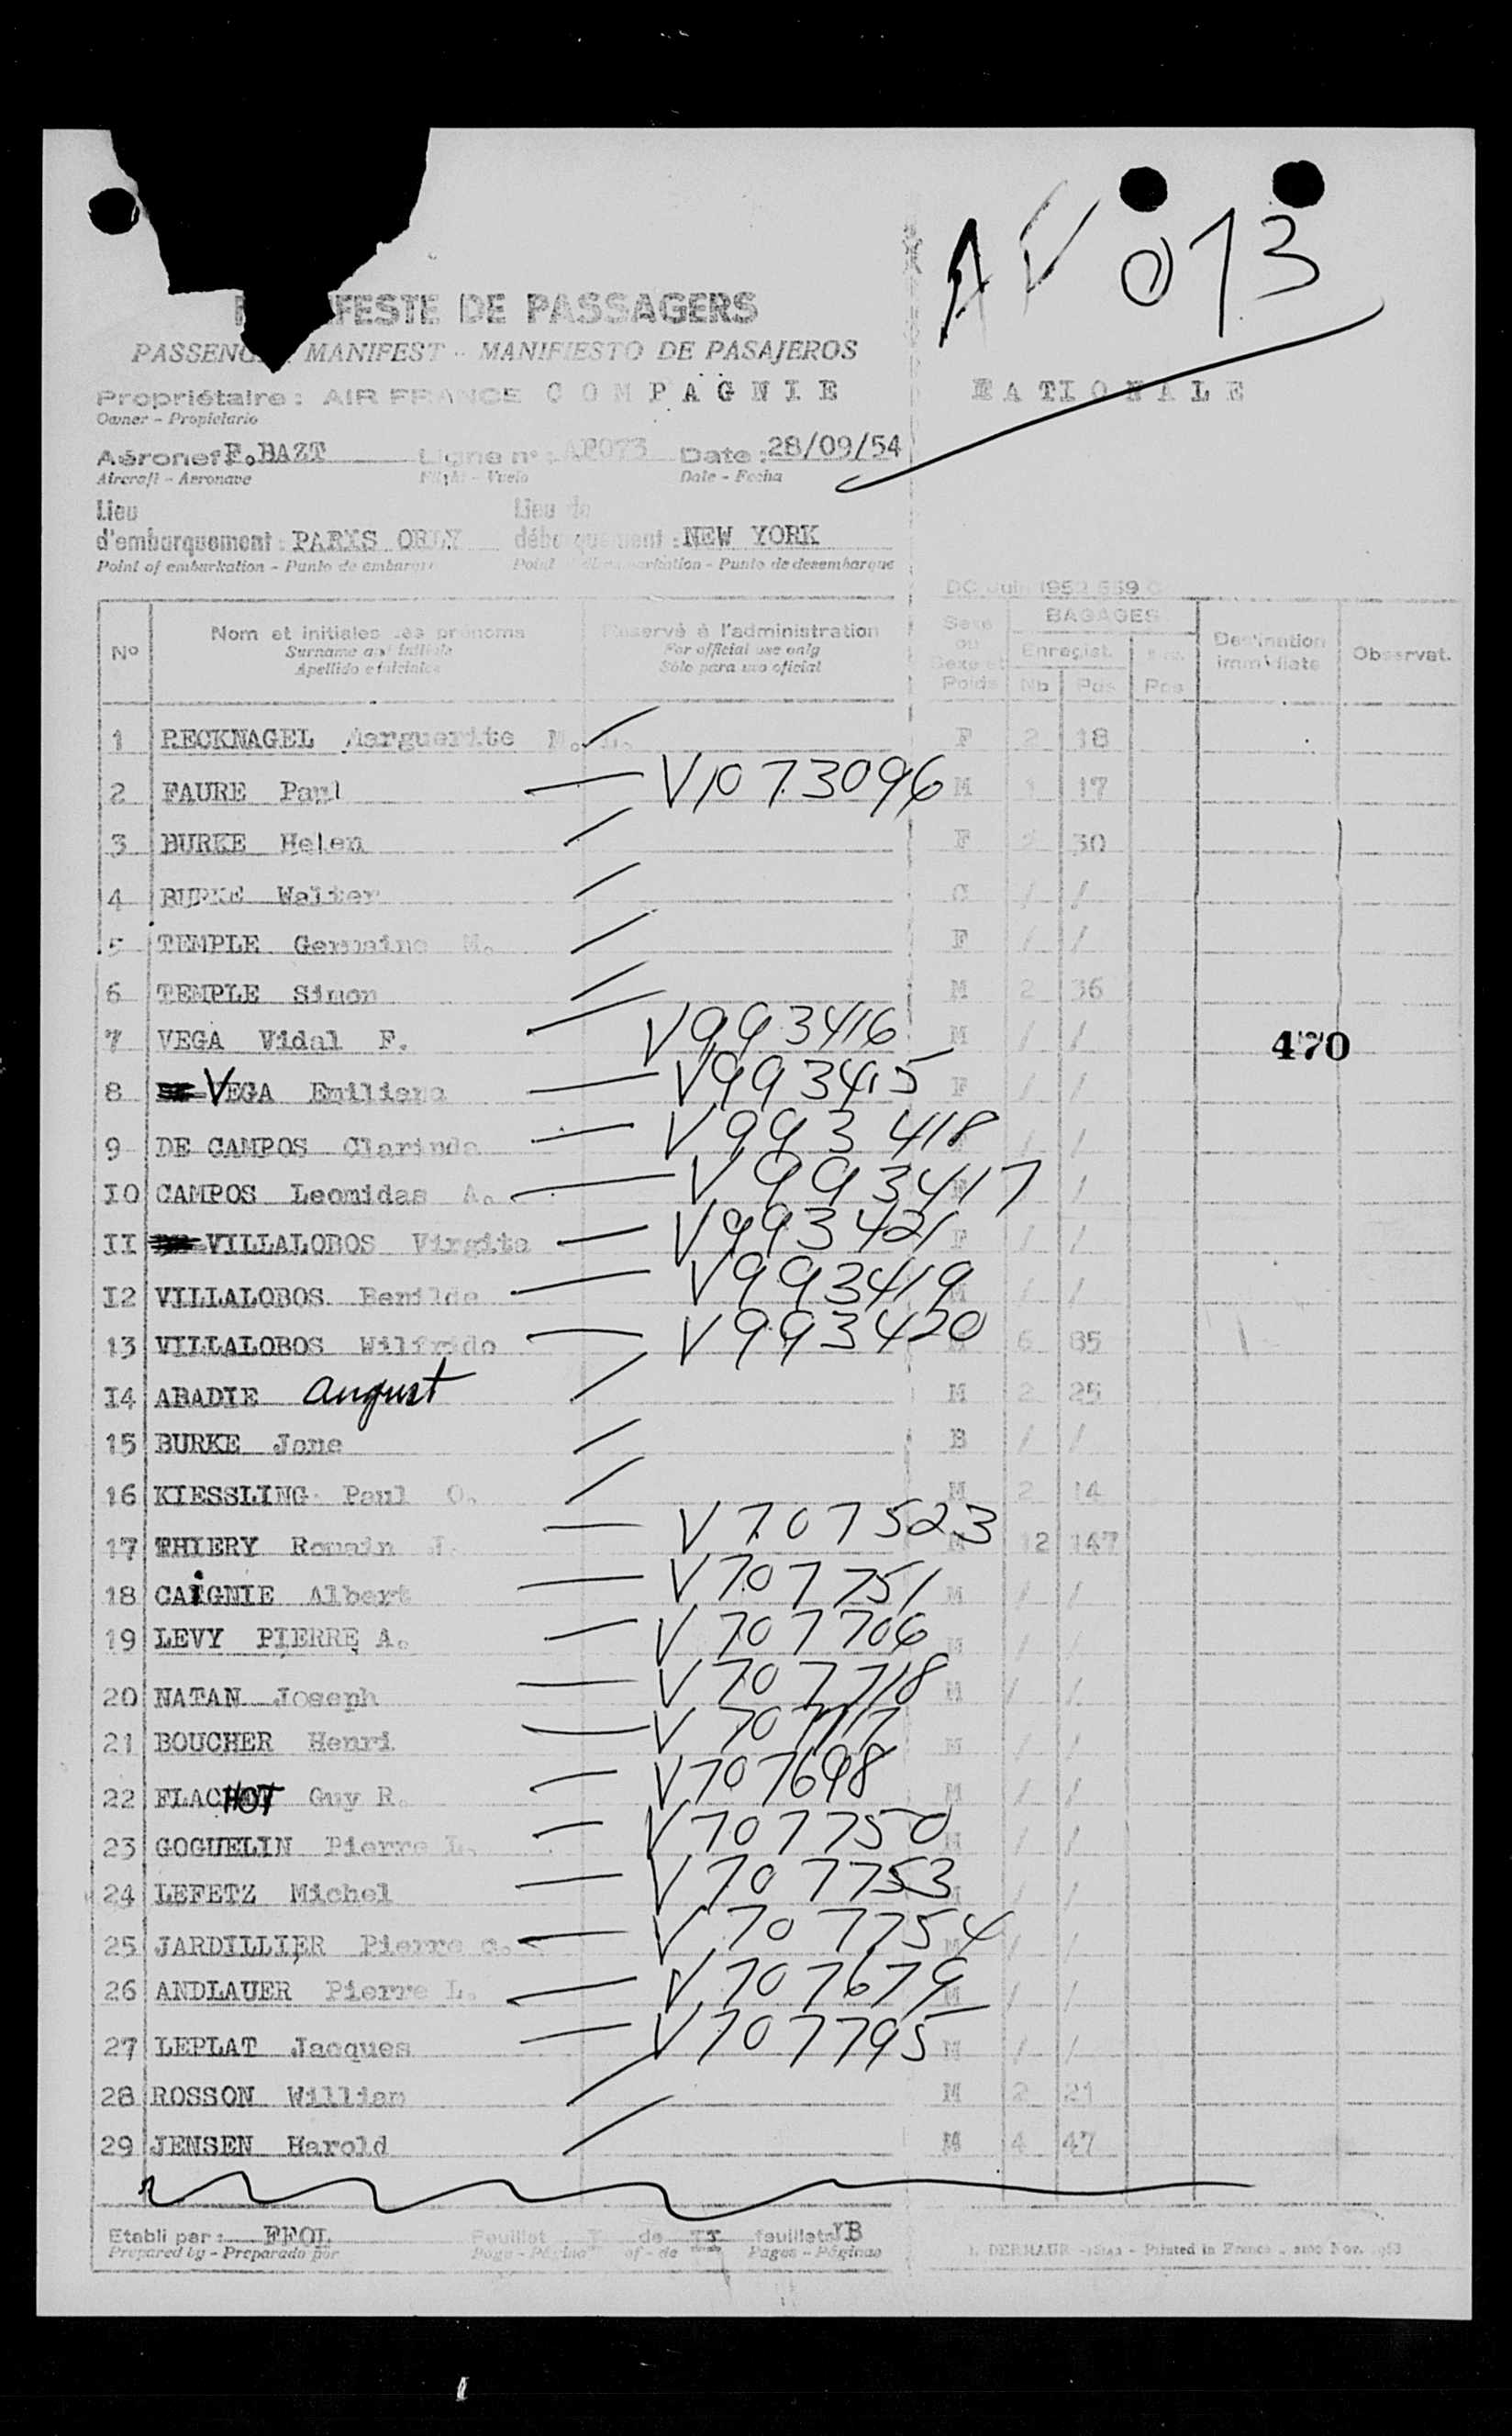 AF 073
FESTE DE PASSAGERS
PASSENG MANIFEST - MANIFIESTO DE PASAJEROS
Propriétaire : AIR FRANCE COMPAGNIE NATIONALE
Owner - Propietario
Aéronef F.BAZT Ligne n° : AF073 Date : 28/09/54
Aircraft - Aeronave Flight - Vuelo Date - Fecha
Lieu d'embarquement : PARIS ORLY Lieu de débarquement : NEW YORK
Point of embarkation - Punto de embarque Point - Punto de desembarque
DC Juin 1952 559
N° Nom et initiales des prénoms Réservé à l'administration Sexe ou Sexe et Poids BAGAGES Destination immédiate Observat.
Surname and initials For official use only Enregist.
Apellido e iniciales Sólo para uso oficial Nb Pds Pds
1 RECKNAGEL Marguerite M. F 2 18
2 FAURE Paul — V1073096 M 1 17
3 BURKE Helen / F 30
4 BURKE Walter / C / /
5 TEMPLE Germaine M. / F / /
6 TEMPLE Simon / M 2 36
7 VEGA Vidal F. — V993416 M / / 470
8 VEGA Emiliana — V993415 F / /
9 DE CAMPOS Clarinda — V993418 / /
10 CAMPOS Leonidas A. — V993417 /
11 VILLALOBOS Virgita — V993421 F / /
12 VILLALOBOS Benilde — V993419 / /
13 VILLALOBOS Wilfrido — V993420 6 85
14 ABADIE august / M 2 25
15 BURKE Jane / B / /
16 KIESSLING Paul O. / M 2 14
17 THIERY Romain J. — V707523 12 147
18 CAiGNIE Albert — V707751 M / /
19 LEVY PIERRE A. — V707706 M / /
20 NATAN Joseph — V707718 M / /
21 BOUCHER Henri — V707717 M / /
22 FLACHOT Guy R. — V707698 M / /
23 GOGUELIN Pierre L. — V707750 M / /
24 LEFETZ Michel — V707753 / /
25 JARDILLIER Pierre c. — V707754 M / /
26 ANDLAUER Pierre L. — V707679 M / /
27 LEPLAT Jacques — V707795 M / /
28 ROSSON William / M 2 21
29 JENSEN Harold / M 4 47
Etabli par : FFOL Feuillet I de II feuillets YB
Prepared by - Preparado por Page - Página of - de Pages - Páginas
DERMAUR - Printed in France